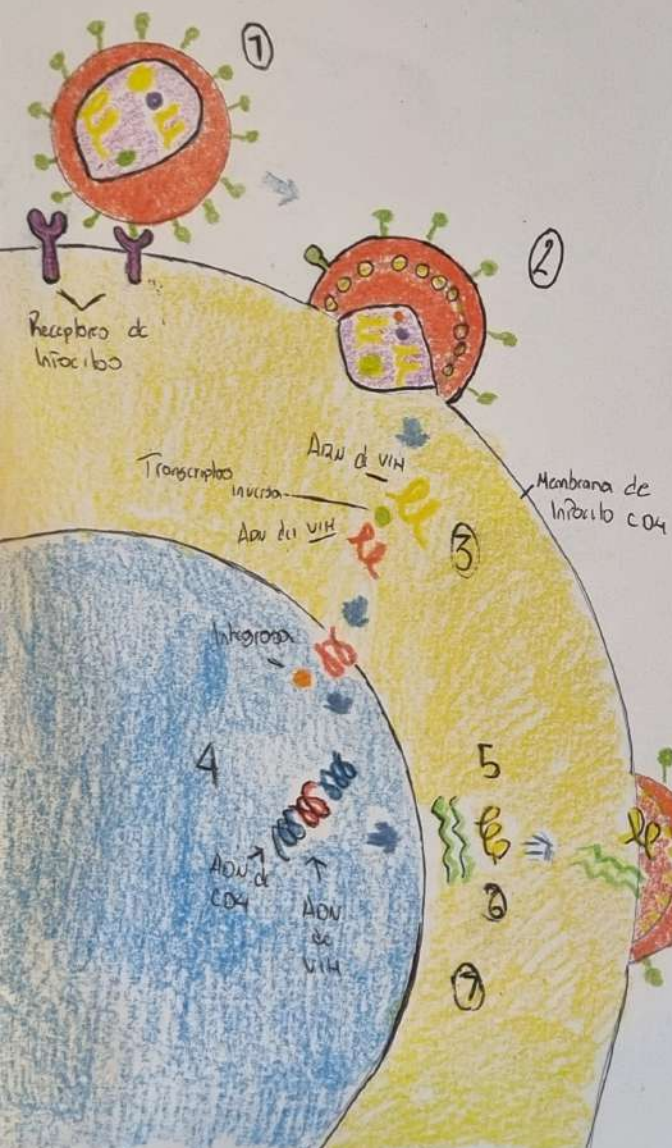 1
2
Receptores de
linfocitos
ARN de VIH
Transcriptasa
inversa
ADN del VIH
Membrana de
linfocito CD4
3
Integrasa
4
5
ADN de
CD4
ADN
de
VIH
6
7